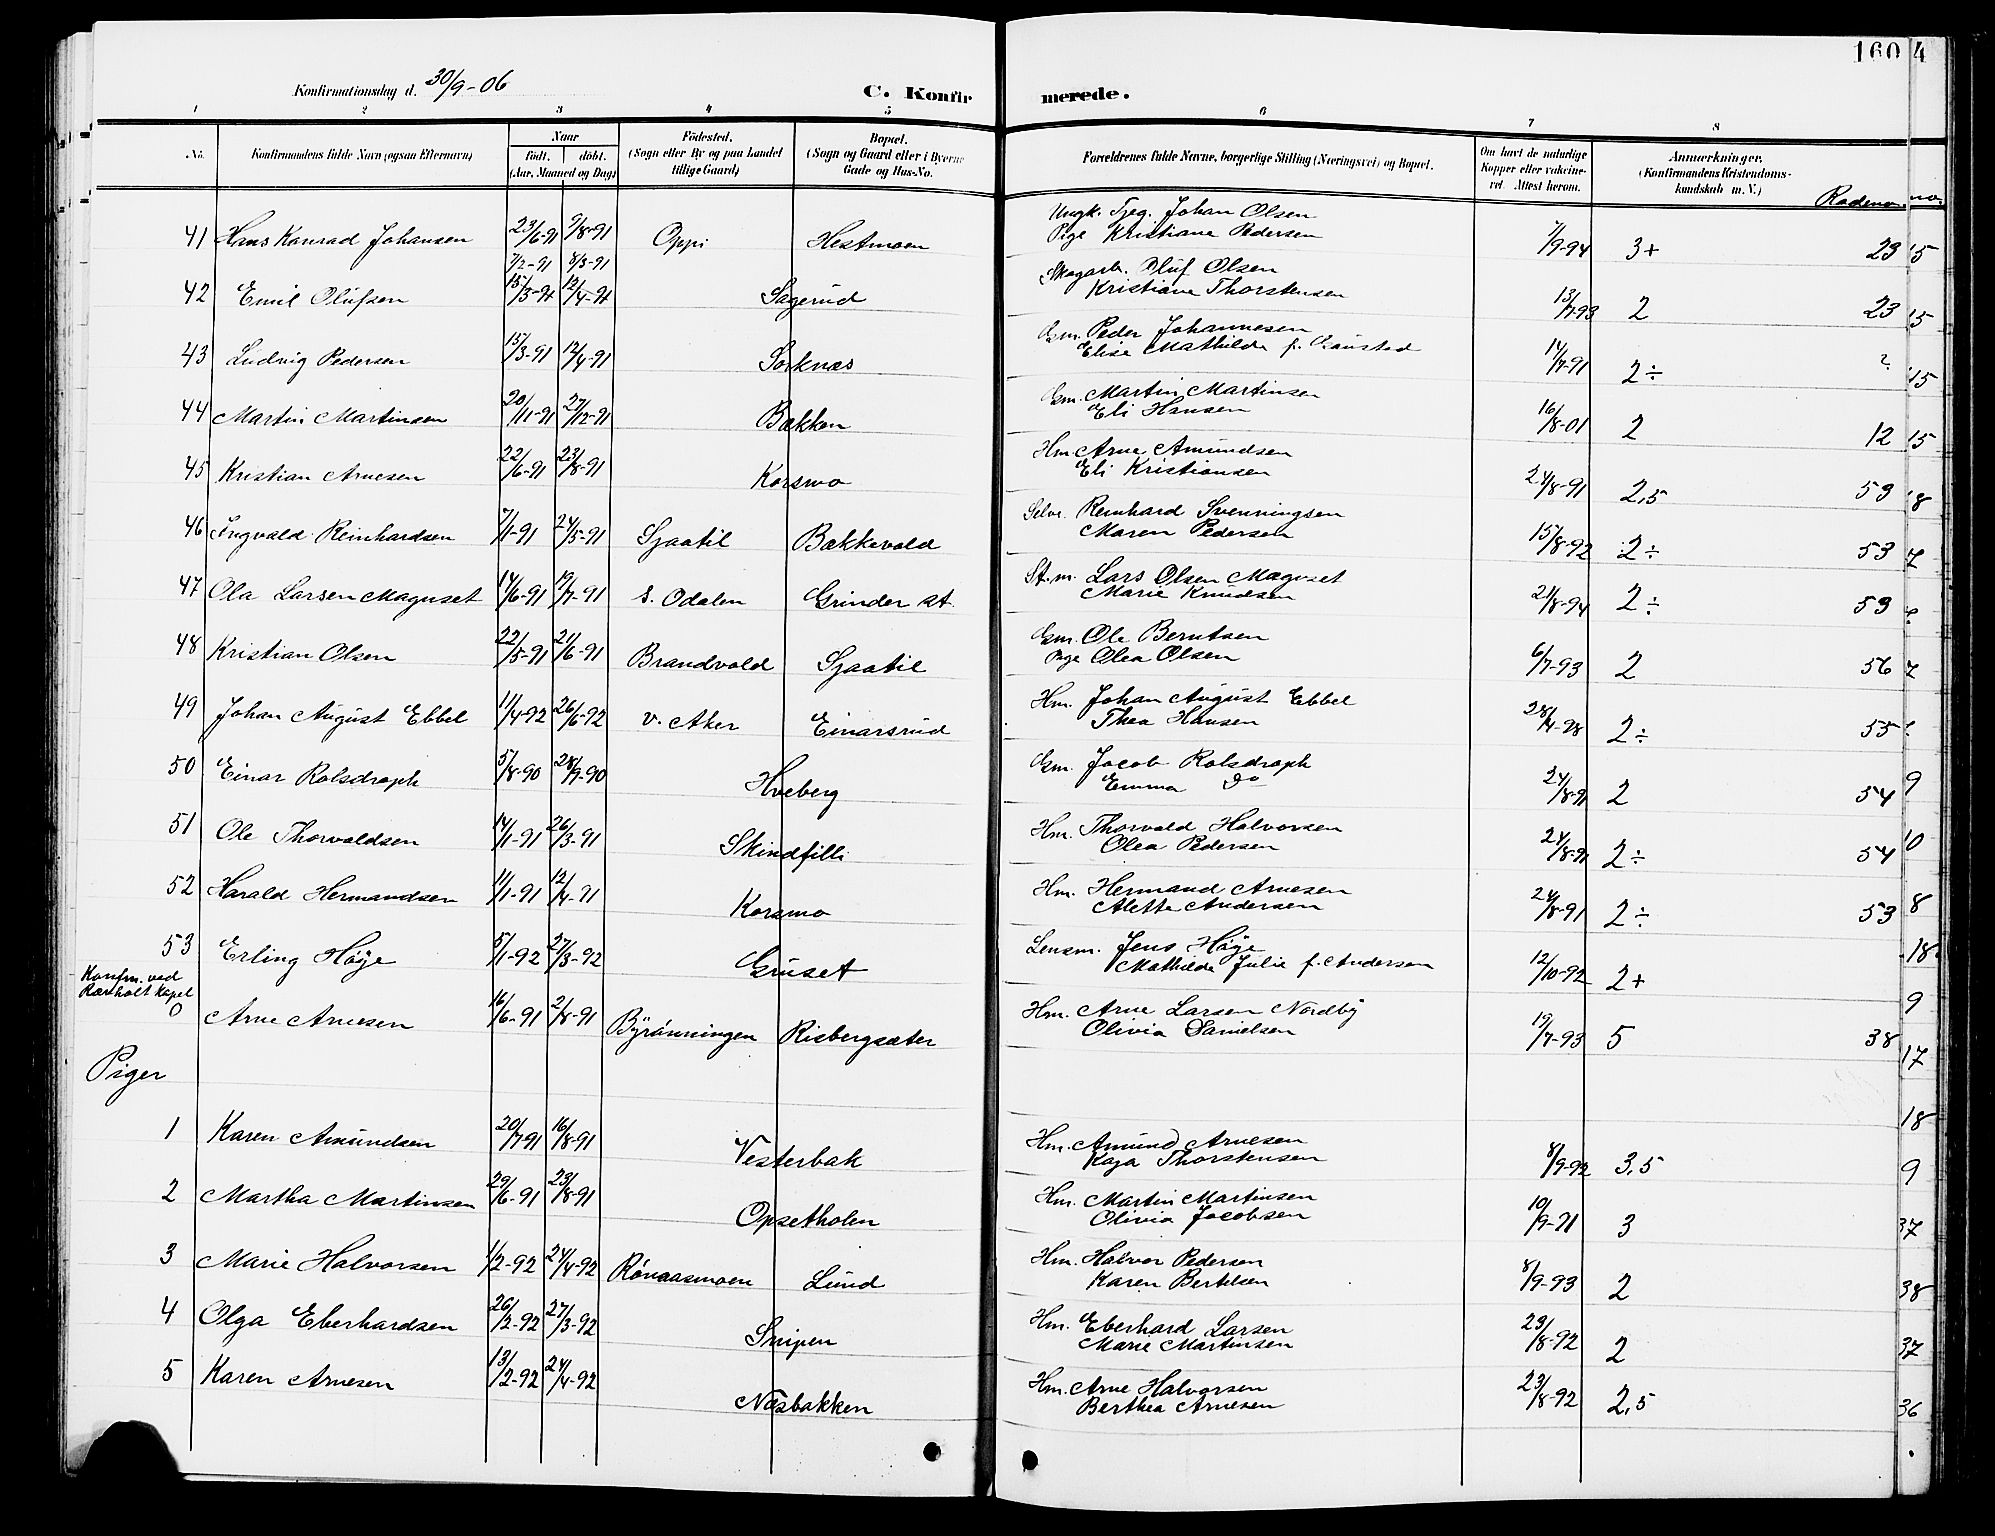 160 4
Konfirmationsdag d. 30/9-06
C. Konfirmerede.
1 2 3 4 5 6 7 8
No. Konfirmandens fulde Navn (ogsaa Efternavn) Naar født. døbt. (Aar, Maaned og Dag) Fødested. (Sogn eller By og paa Landet tillige Gaard) Bopæl. (Sogn og Gaard eller i Byerne Gade og Hus-No. Forældrenes fulde Navne, borgerlige Stilling (Næringsvei) og Bopæl. Om havt de naturlige Kopper eller vakcineret. Attest herom. Anmærkninger. (Konfirmandens Kristendomskundskab m. V.) Rodeno.
41 Hans Konrad Johansen 23/6-91 9/8-91 Oppi Hestmoen Ungk. Tjeg. Johan Olsen 7/9-94 3+ 23
Pige Kristiane Pedersen
7/2-91 8/3-91
42 Emil Olufsen 15/3-91 12/4-91 Sagerud Skogarb. Oluf Olsen 13/7-93 2 23
Kristiane Thorstensen
43 Ludvig Pedersen 15/3-91 12/4-91 Sorknæs Gm. Peder Johannesen 14/7-91 2÷ ?
Elise Mathilde f. Gaustad
44 Martin Martinsen 20/11-91 27/12-91 Bakken Gm. Martin Martinsen 16/8-01 2 12
Eli Hansen
45 Kristian Arnesen 22/6-91 23/8-91 Korsmo Hm. Arne Amundsen 24/8-91 2,5 53
Eli Kristiansen
46 Ingvald Reinhardsen 7/1-91 24/5-91 Sjaatil Bakkevold Selv. Reinhard Svenningsen 15/8-92 2÷ 53
Maren Pedersen
47 Ola Larsen Magnset 14/6-91 19/7-91 S. Odalen Grinder st. St.m. Lars Olsen Magnset 21/8-94 2÷ 53
Marie Knudsen
48 Kristian Olsen 22/5-91 21/6-91 Brandvold Sjaatil Gm. Ole Berntsen 6/7-93 2 56
Pige Olea Olsen
49 Johan August Ebbel 11/4-92 26/6-92 V. Aker Einarsrud Hm. Johan August Ebbel 28/4-98 2÷ 55
Thea Hansen
50 Einar Rolsdroph 5/8-90 28/9-90 Hveberg Gm. Jacob Rolsdroph 24/8-91 2 54
Emma do
51 Ole Thorvaldsen 14/1-91 26/3-91 Skindfilli Hm. Thorvald Halvorsen 24/8-91 2÷ 54
Olea Pedersen
52 Harald Hermandsen 11/1-91 12/4-91 Korsmo Hm. Hermand Arnesen 24/8-91 2÷ 53
Alette Andersen
53 Erling Høye 5/1-92 27/3-92 Gruset Lensm. Jens Høye 12/10-92 2+
Mathilde Julie f. Andersen
Konfm. ved
Rærholt Kapel
0 Arne Arnesen 16/6-91 2/8-91 Byrønningen Risbergsæter Hm. Arne Larsen Nordby 19/7-93 5 38
Olivia Danielsen
Piger
1 Karen Amundsen 20/7-91 16/8-91 Vesterbak Hm. Amund Arnesen 8/9-92 3,5
Kaja Thorstensen
2 Martha Martinsen 29/6-91 23/8-91 Opsetholen Hm. Martin Martinsen 10/9-91 3
Olivia Jacobsen
3 Marie Halvorsen 1/2-92 24/4-92 Rønaasmoen Lund Hm. Halvor Pedersen 8/9-93 2
Karen Bertelsen
4 Olga Eberhardsen 26/2-92 27/3-92 Snipen Hm. Eberhard Larsen 23/8-92 2
Marie Martinsen
5 Karen Arnesen 13/2-92 24/4-92 Næsbakken Hm. Arne Halvorsen 23/8-92 2,5
Berthea Arnesen